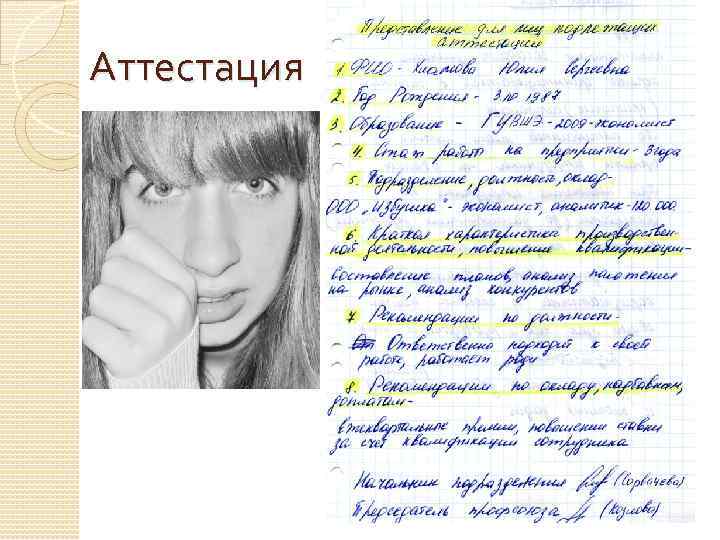 Аттестация
Представление для лиц подлежащих
аттестации
1. ФИО - Юлия Сергеевна
2. Год Рождения - 1987
3. Образование - ГУВШЭ - 2009 - экономист
4. Стаж работы на предприятии - 3 года
5. Подразделение, должность, оклад -
ООО "Избушка" - экономист, аналитик - 120 000
6. Краткая характеристика производствен-
ной деятельности, повышение квалификации -
составление планов, анализ положения
на рынке, анализ конкурентов
7. Рекомендации по должности -
Ответственно подходит к своей
работе, работает
8. Рекомендации по окладу, надбавкам,
доплатам -
квартальные премии, повышении ставки
за счёт квалификации сотрудника
Начальник подразделения (Горбачева)
Председатель профсоюза (Козлова)